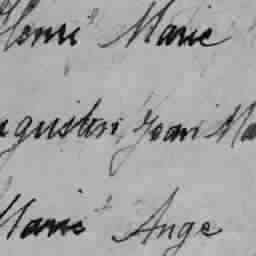 Henri Marie
Augustin Jean Ma
Marie Ange